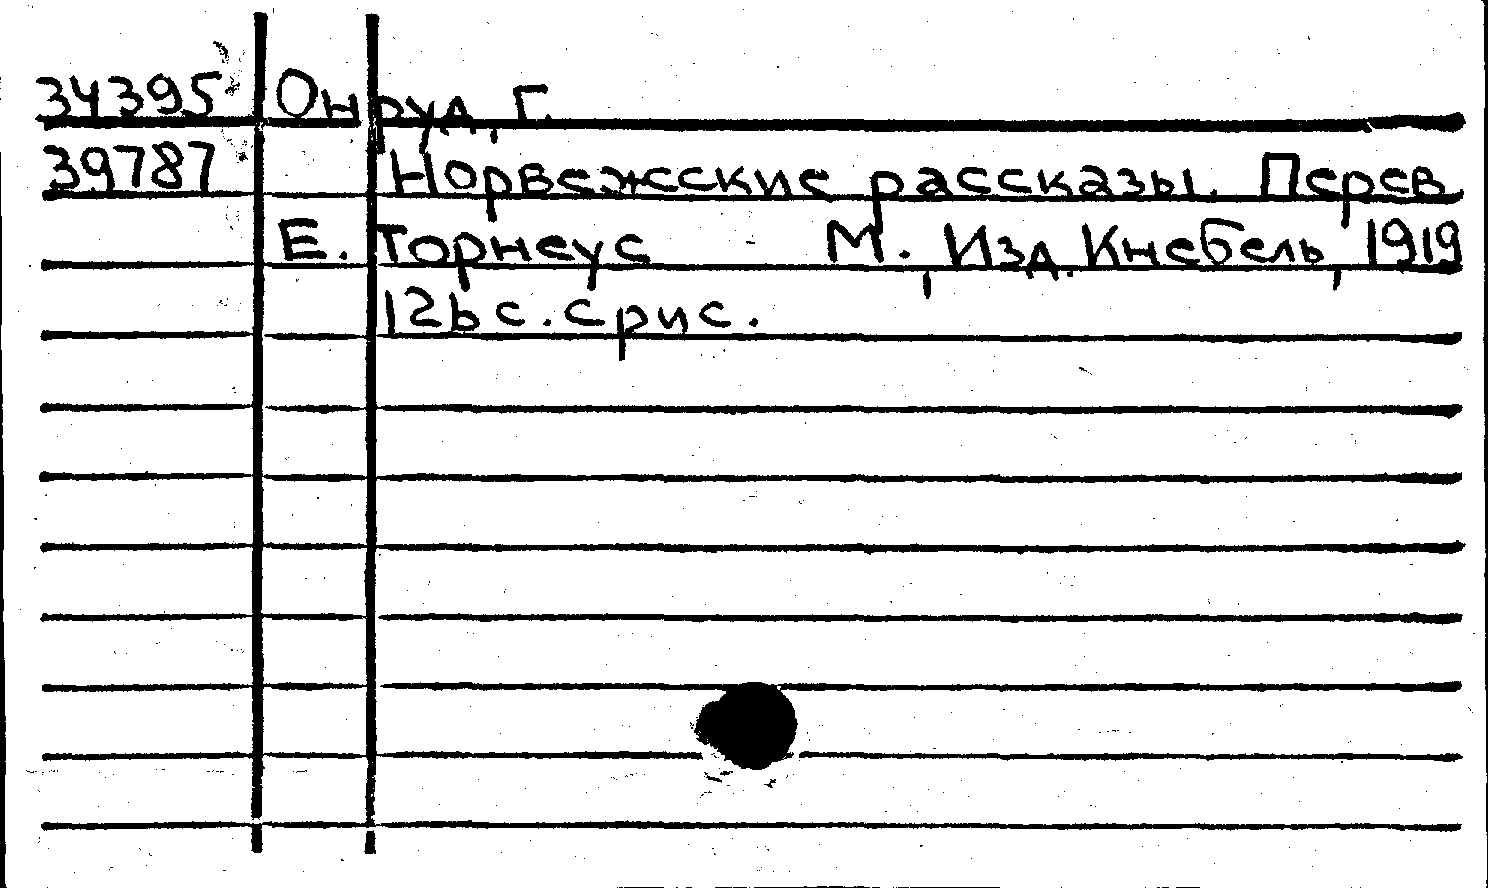 34395 Онруд, Г.
39787 Норвежские рассказы. Перев
Е. Торнеус М., Изд. Кнебель, 1919
126 с. с рис.